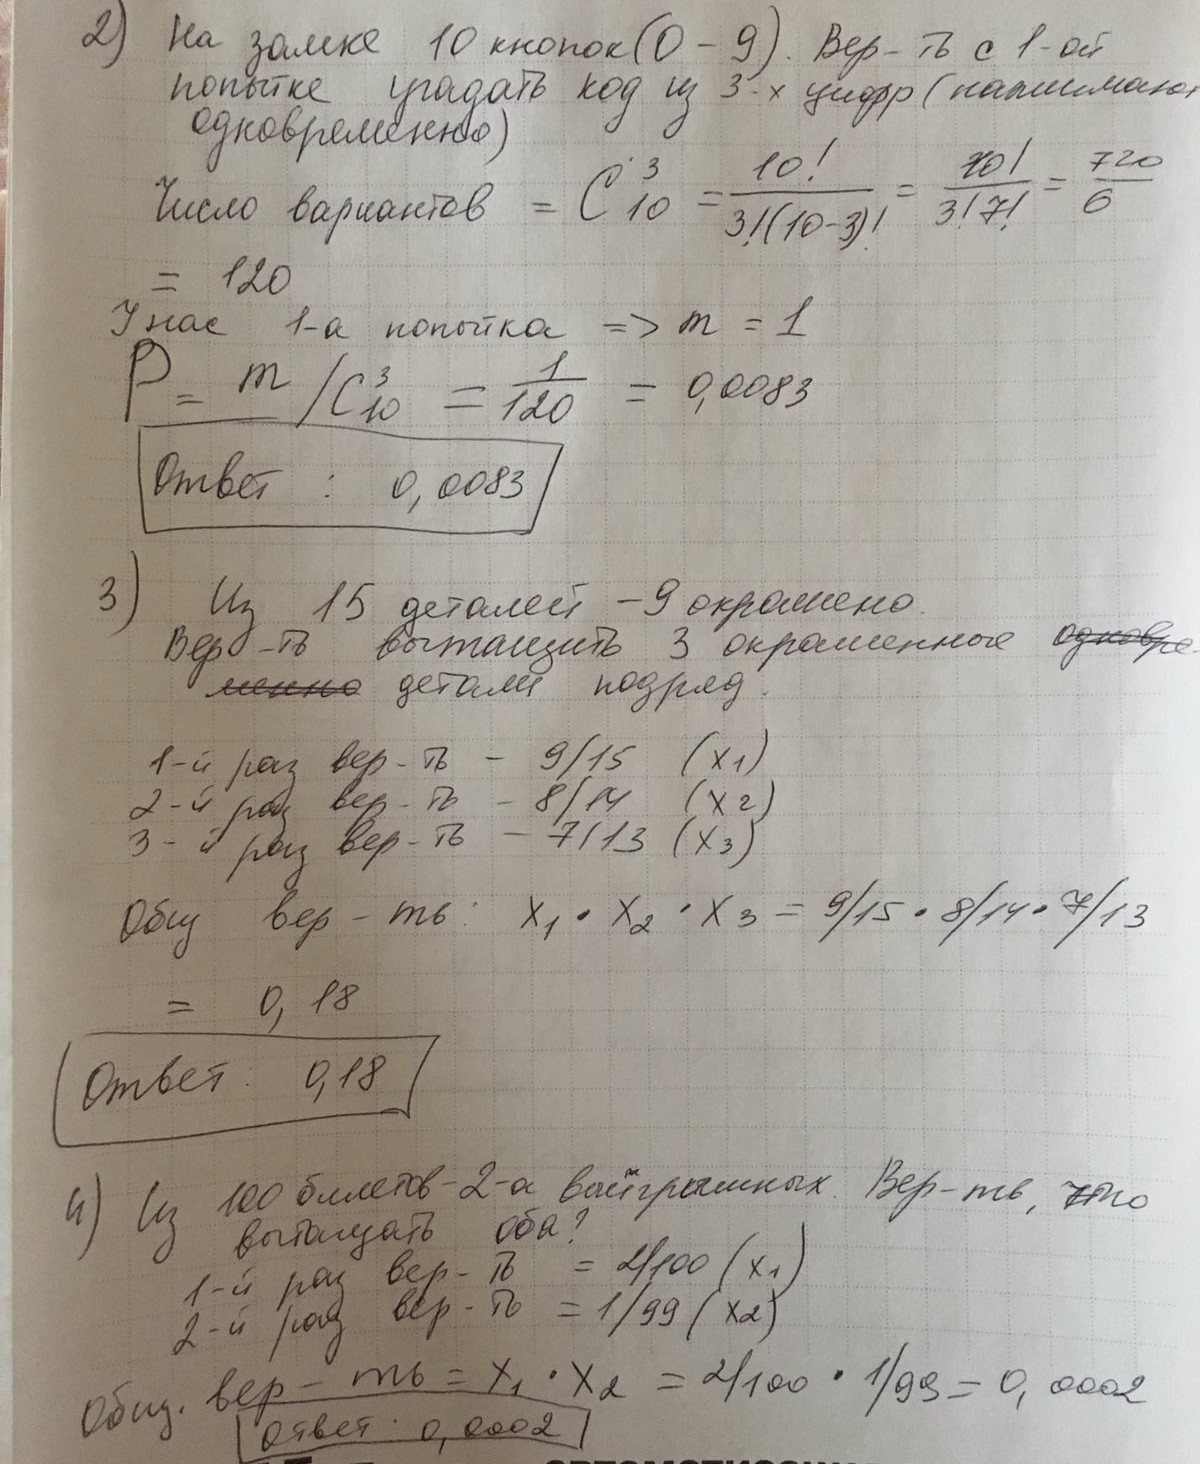 2) На замке 10 кнопок (0 – 9). Вер-ть с 1-ой
попытке угадать код из 3-х цифр (нажимают
одновременно)
Число вариантов = C₁₀³ = 10!/3!(10-3)! = 10!/3!7! = 720/6
= 120
У нас 1-а попытка => m = 1
P = m/C₁₀³ = 1/120 = 0,0083
Ответ : 0,0083
3) Из 15 деталей – 9 окрашено.
Вер-ть вытащить 3 окрашенные одновре-
менно детали подряд.
1-й раз вер-ть – 9/15 (x1)
2-й раз вер-ть – 8/14 (x2)
3-й раз вер-ть – 7/13 (x3)
Общ вер-ть: x1 · x2 · x3 = 9/15 · 8/14 · 7/13
= 0,18
Ответ : 0,18
4) Из 100 билетов-2-а выйгрышных. Вер-ть, что
вытащать оба?
1-й раз вер-ть = 2/100 (x1)
2-й раз вер-ть = 1/99 (x2)
Общ. вер-ть = x1 · x2 = 2/100 · 1/99 = 0,0002
Ответ : 0,0002